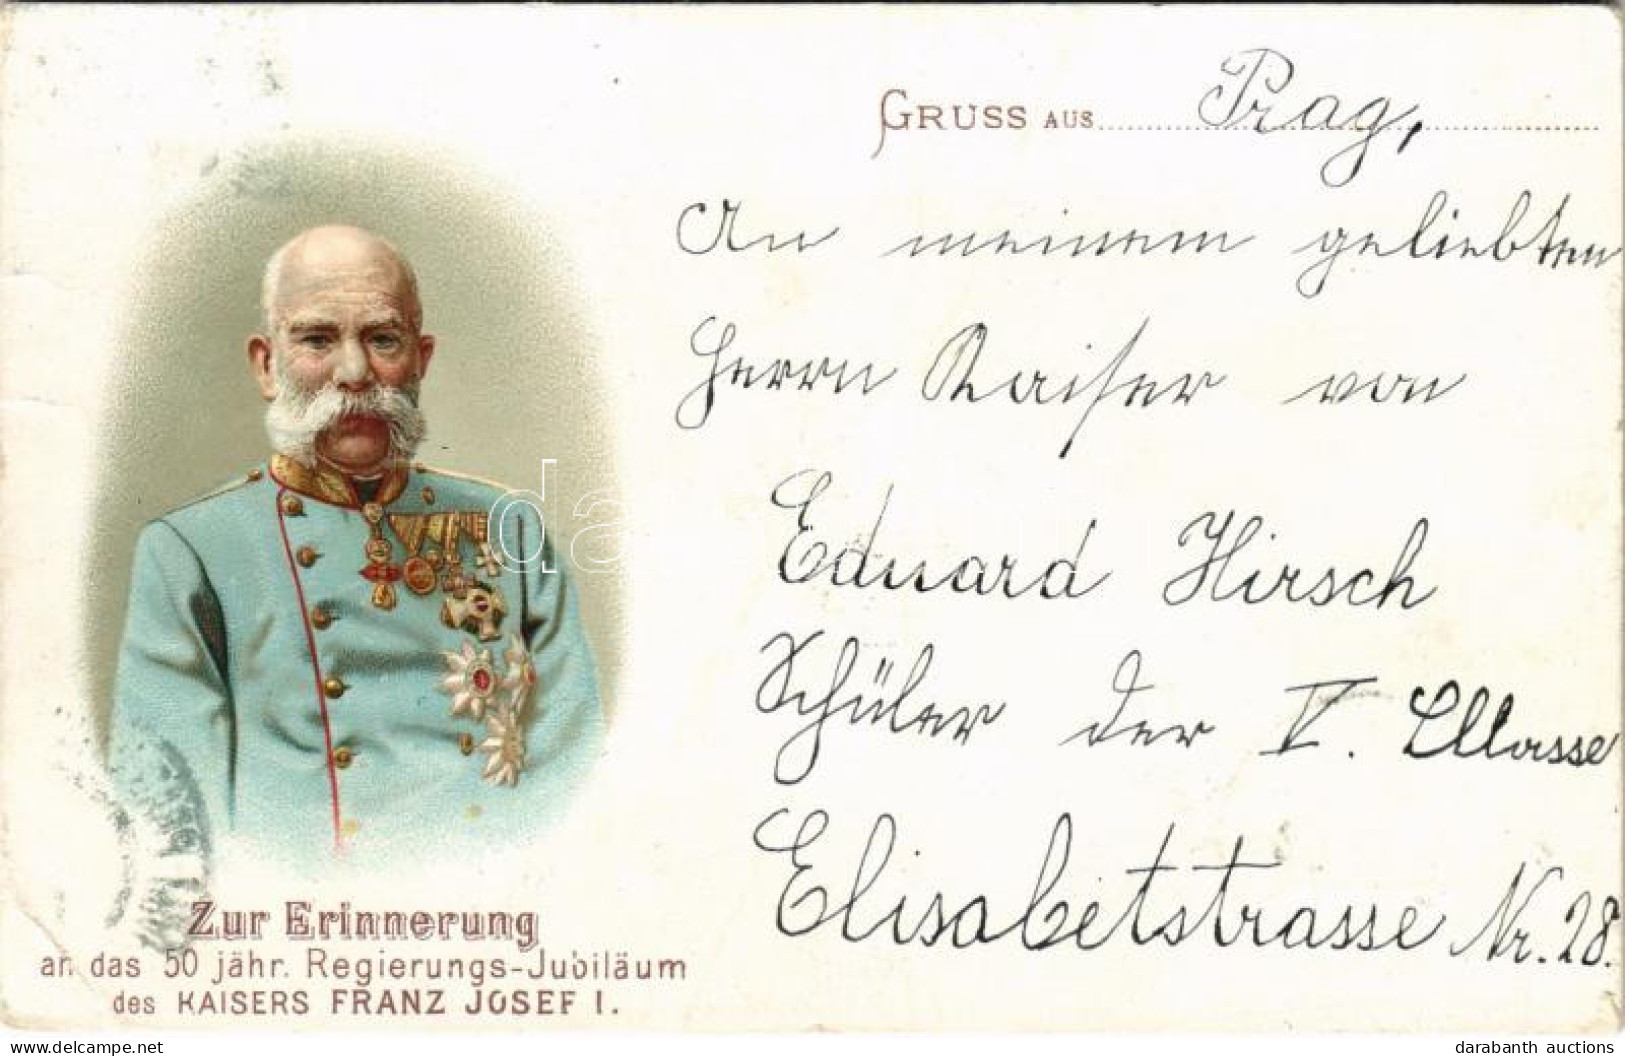 GRUSS AUS Prag,
An meinem geliebten
Herrn Kaiser von
Eduard Hirsch
Schüler der V. Classe
Elisabetstrasse Nr. 28.
Zur Erinnerung
an das 50 jähr. Regierungs-Jubiläum
des KAISERS FRANZ JOSEF I.
delcampe.net
darabanth auctions